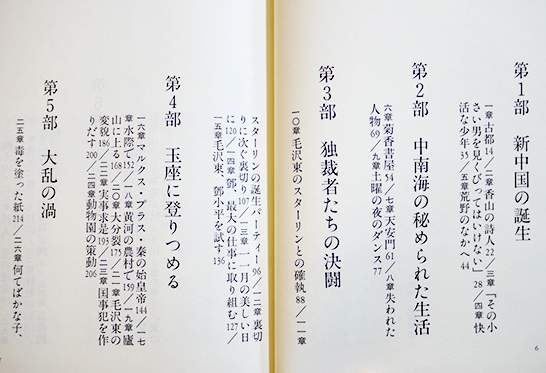 第1部　新中国の誕生
一章 古都 14／二章 香山の詩人 22／三章 「その小
さい男を見くびってはいけない」 28／四章 快
活な少年 35／五章 荒野のなかへ 44
第2部　中南海の秘められた生活
六章 菊香書屋 54／七章 天安門 61／八章 失われた
人物 69／九章 土曜の夜のダンス 77
第3部　独裁者たちの決闘
一〇章 毛沢東のスターリンとの確執 88／一一章
6
スターリンの誕生パーティー 96／一二章 裏切
りに次ぐ裏切り 107／一三章 一一月の美しい日
に 120／一四章 鄧、最大の仕事に取り組む 127／
一五章 毛沢東、鄧小平を試す 136
第4部　玉座に登りつめる
一六章 マルクス・プラス・秦の始皇帝 144／一七
章 水際で 152／一八章 黄河の農村で 159／一九章 廬
山に上る 168／二〇章 大分裂 175／二一章 毛沢東の
変貌 186／二二章 実事求是 193／二三章 国事犯を作
りだす 200／二四章 動物園の策動 206
第5部　大乱の渦
二五章 毒を塗った紙 214／二六章 何てばかな子、